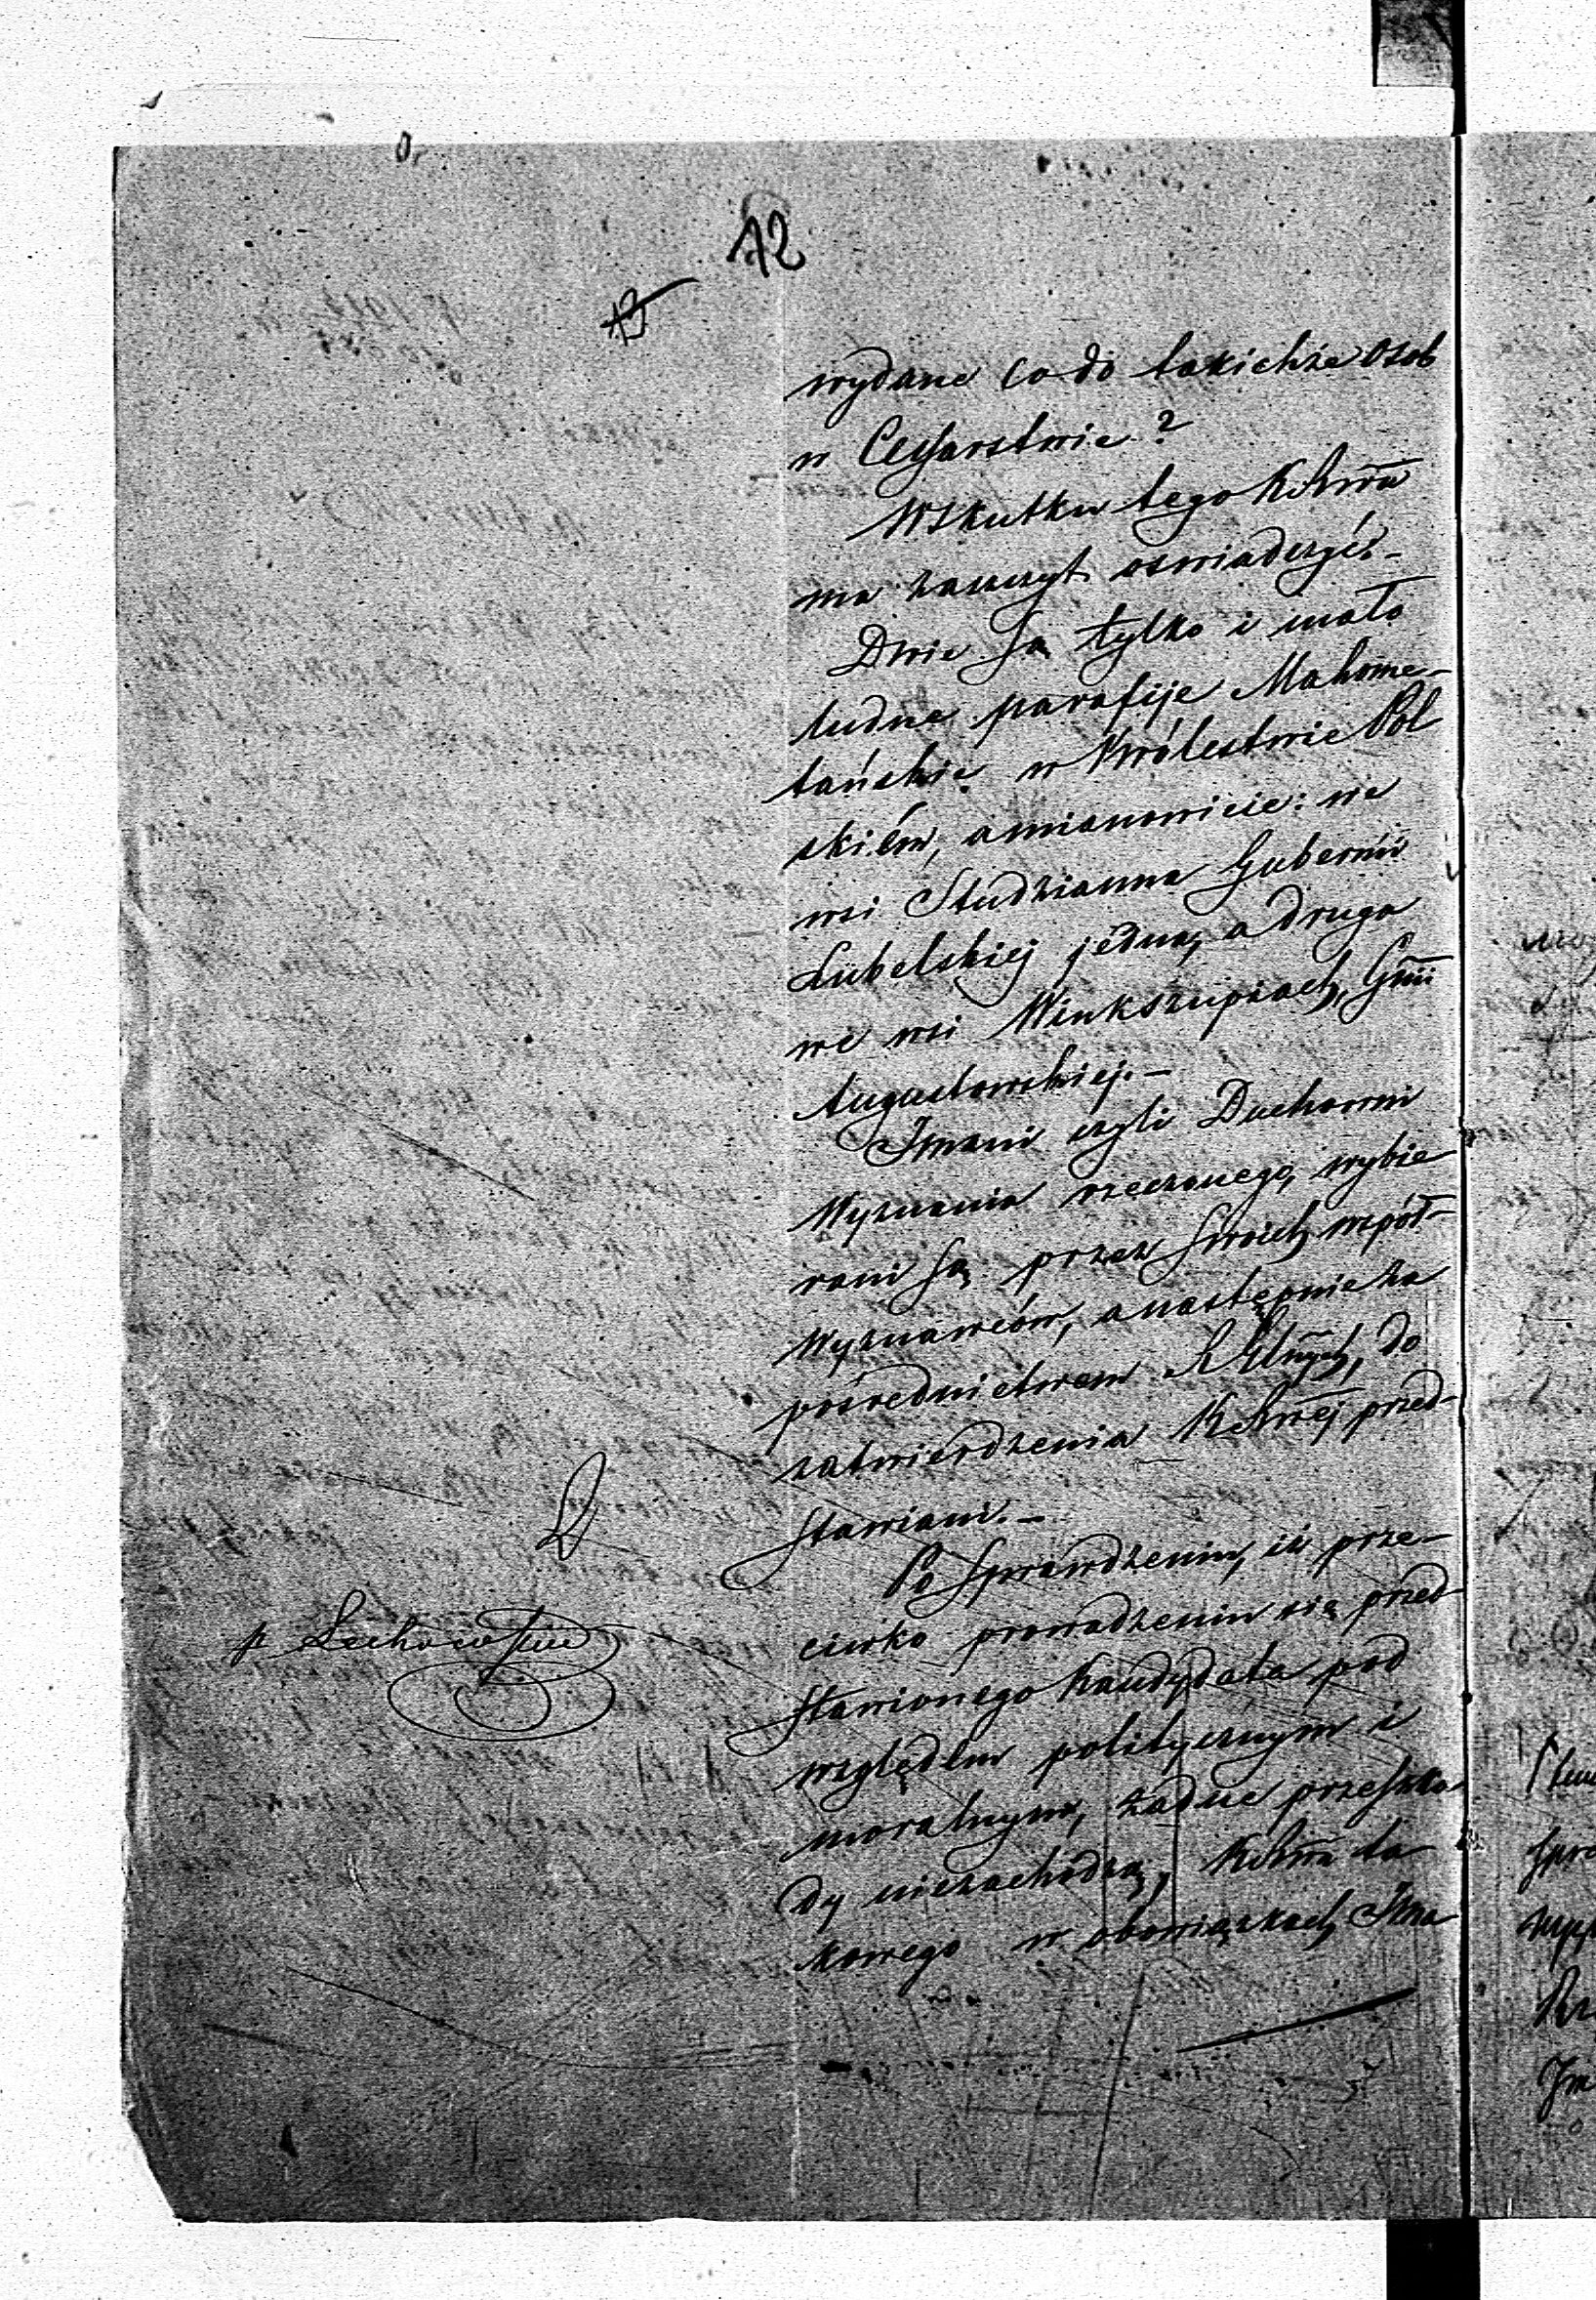 12
13
wydane co do takichże osób
w Cessarstwie?
Wskutku tego KRSWna
ma zaszczyt oświadczyć.-
Dwie są tylko i mało
ludne parafije Mahome-
tańskie w Królestwie Pol
skiém, a mianowicie: we
wsi Studzianna Gubernii
Lubelskiej jedna, a druga
we wsi Winkszupiach, Gnii
Augustowskiej.-
Imani czyli Duchowni
Wyznania rzeczonego, wybie
rani są przez swoich współ-
wyznawców, a następnie za
pośrednictwem Rządów Glnych, do
zatwierdzenia KRSWnej przed-
stawiani.-
Po sprawdzeniu, iż prze-
ciwko prowadzeniu się przed-
stawionego Kandydata pod
względem politycznym i
moralnym, żadne przeszko
dy niezachodzą, KRSWna ta-
kowego w obowiązkach Ima